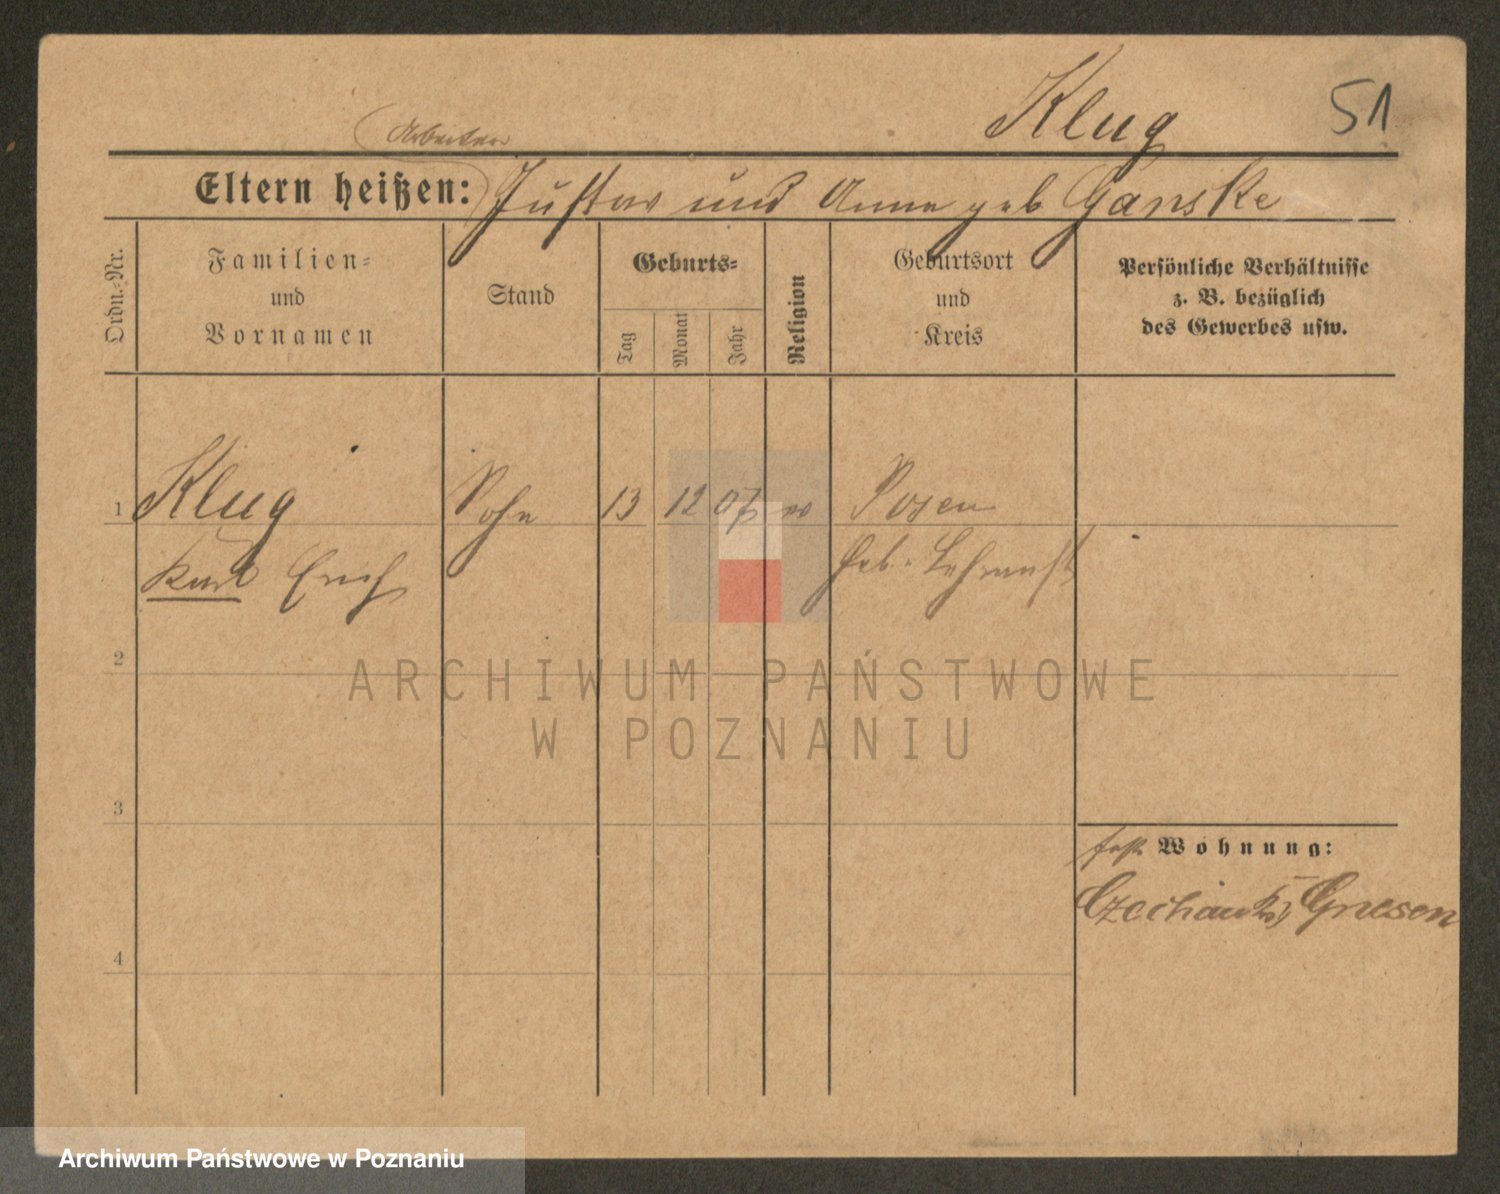 Klug 51
Arbeiter
Eltern heißen: Gustav und Anna geb Ganske
Ordn.-Nr.
Familien-
und
Vornamen
Stand
Geburts-
Tag
Monat
Jahr
Religion
Geburtsort
und
Kreis
Persönliche Verhältnisse
z. B. bezüglich
des Gewerbes usw.
1 Klug Sohn 13 12 07 ev Posen
Karl Erich Heb. Lehranst
2
ARCHIWUM PAŃSTWOWE
W POZNANIU
3
Wohnung:
Gnesen
4
Archiwum Państwowe w Poznaniu